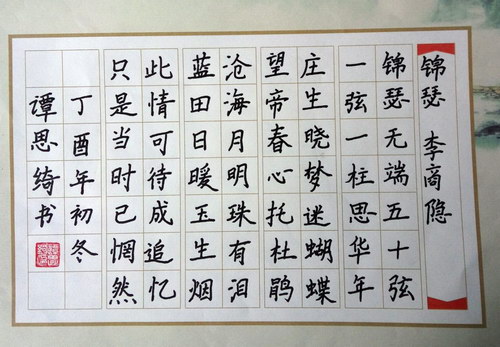 锦瑟 李商隐
锦瑟无端五十弦
一弦一柱思华年
庄生晓梦迷蝴蝶
望帝春心托杜鹃
沧海月明珠有泪
蓝田日暖玉生烟
此情可待成追忆
只是当时已惘然
丁酉年初冬
谭思绮书